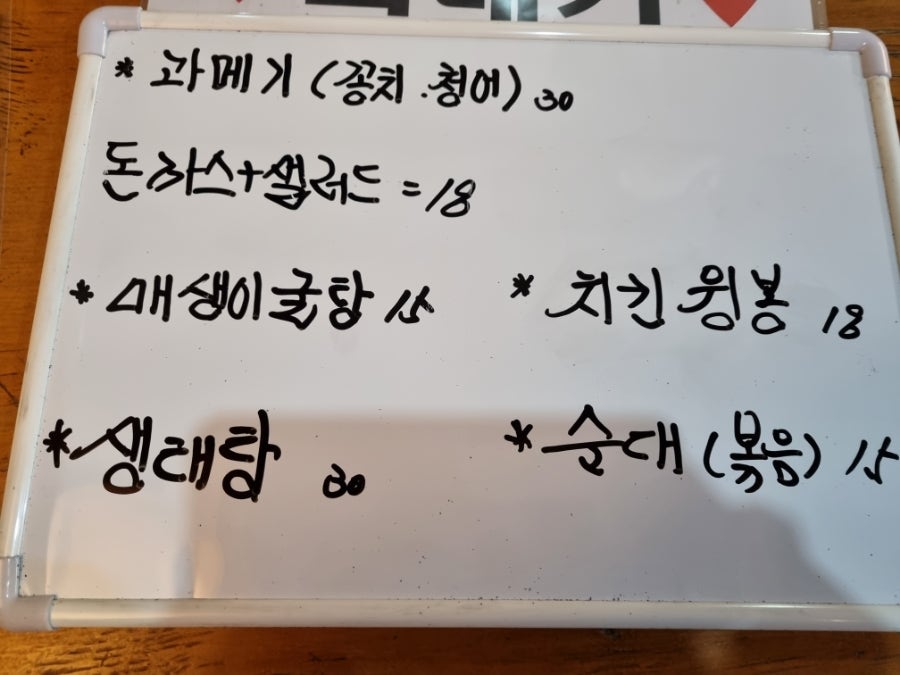 * 과메기 (꽁치.청어) 30
돈까스+샐러드 = 18
* 매생이굴탕 15
* 치킨윙봉 18
* 생태탕 30
* 순대 (볶음) 15